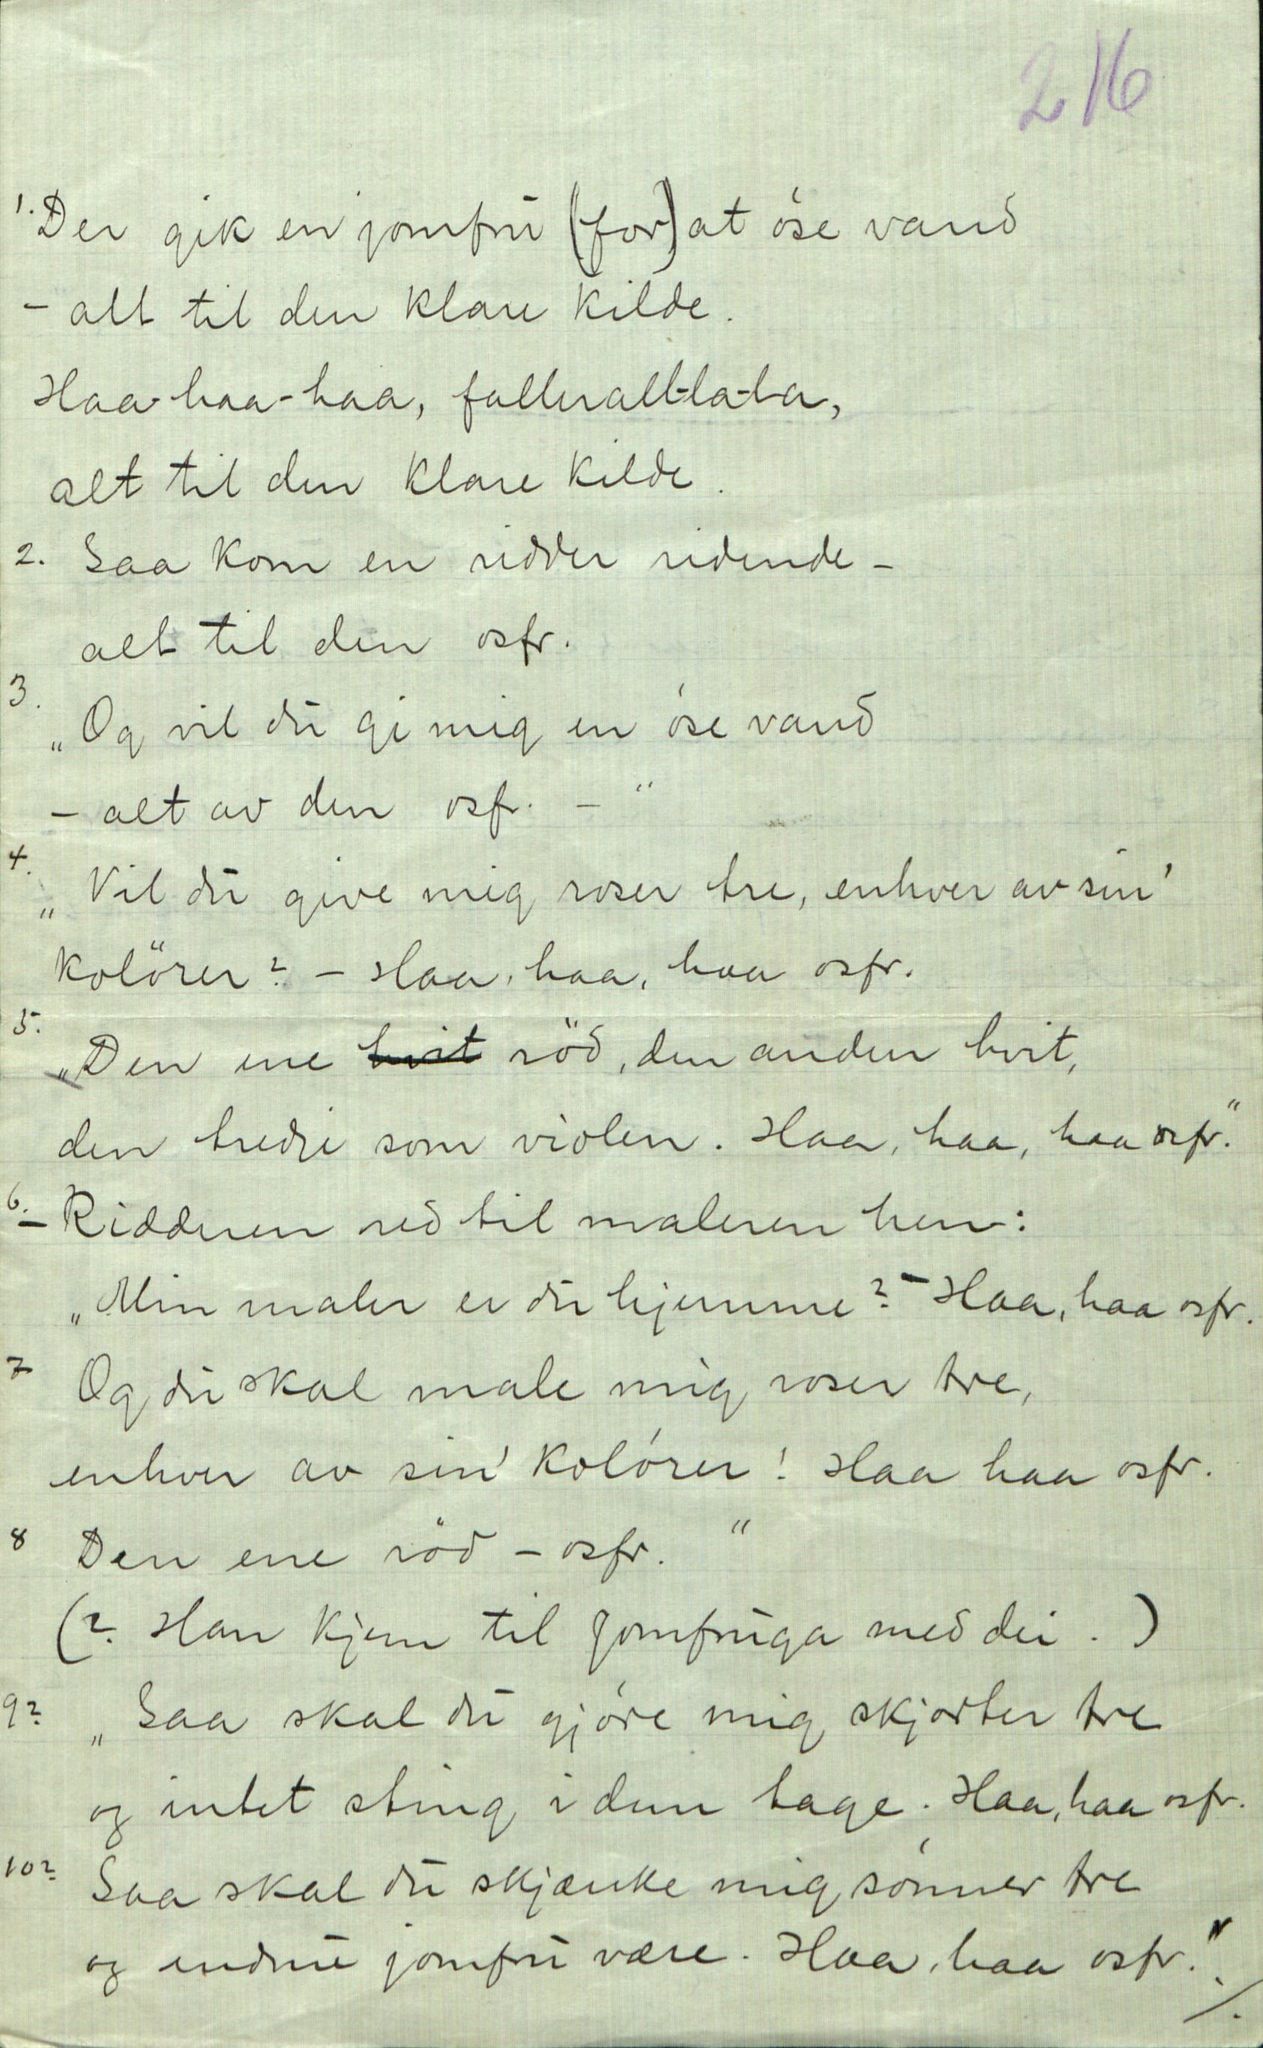 216
1. Der gik en jomfru (for) at øse vand
- alt til den klare kilde.
Haa-haa-haa, falleralt-la-la,
alt til den klare kilde.
2. Saa kom en ridder ridende -
alt til den osfr.
3.
„Og vil du gi mig en øse vand
- alt av den osfr. - "
4.
„Vil du give mig roser tre, enhver av sin'
kolører? - Haa, haa, haa osfr.
5.
„Den ene hvit röd, den anden hvit,
den tredje som violen. Haa, haa, haa osfr."
6. - Ridderen red til maleren hen:
„Min maler er du hjemme? - Haa, haa osfr.
7 Og du skal male mig roser tre,
enhver av sin' kolører! Haa haa osfr.
8 Den ene röd - osfr. "
(?. Han kjem til jomfruga med dei.)
9? „Saa skal du gjøre mig skjorter tre
og intet sting i dem tage. Haa, haa osfr.
10? Saa skal du skjænke mig sønner tre
og endnu jomfru være. Haa, haa osfr."